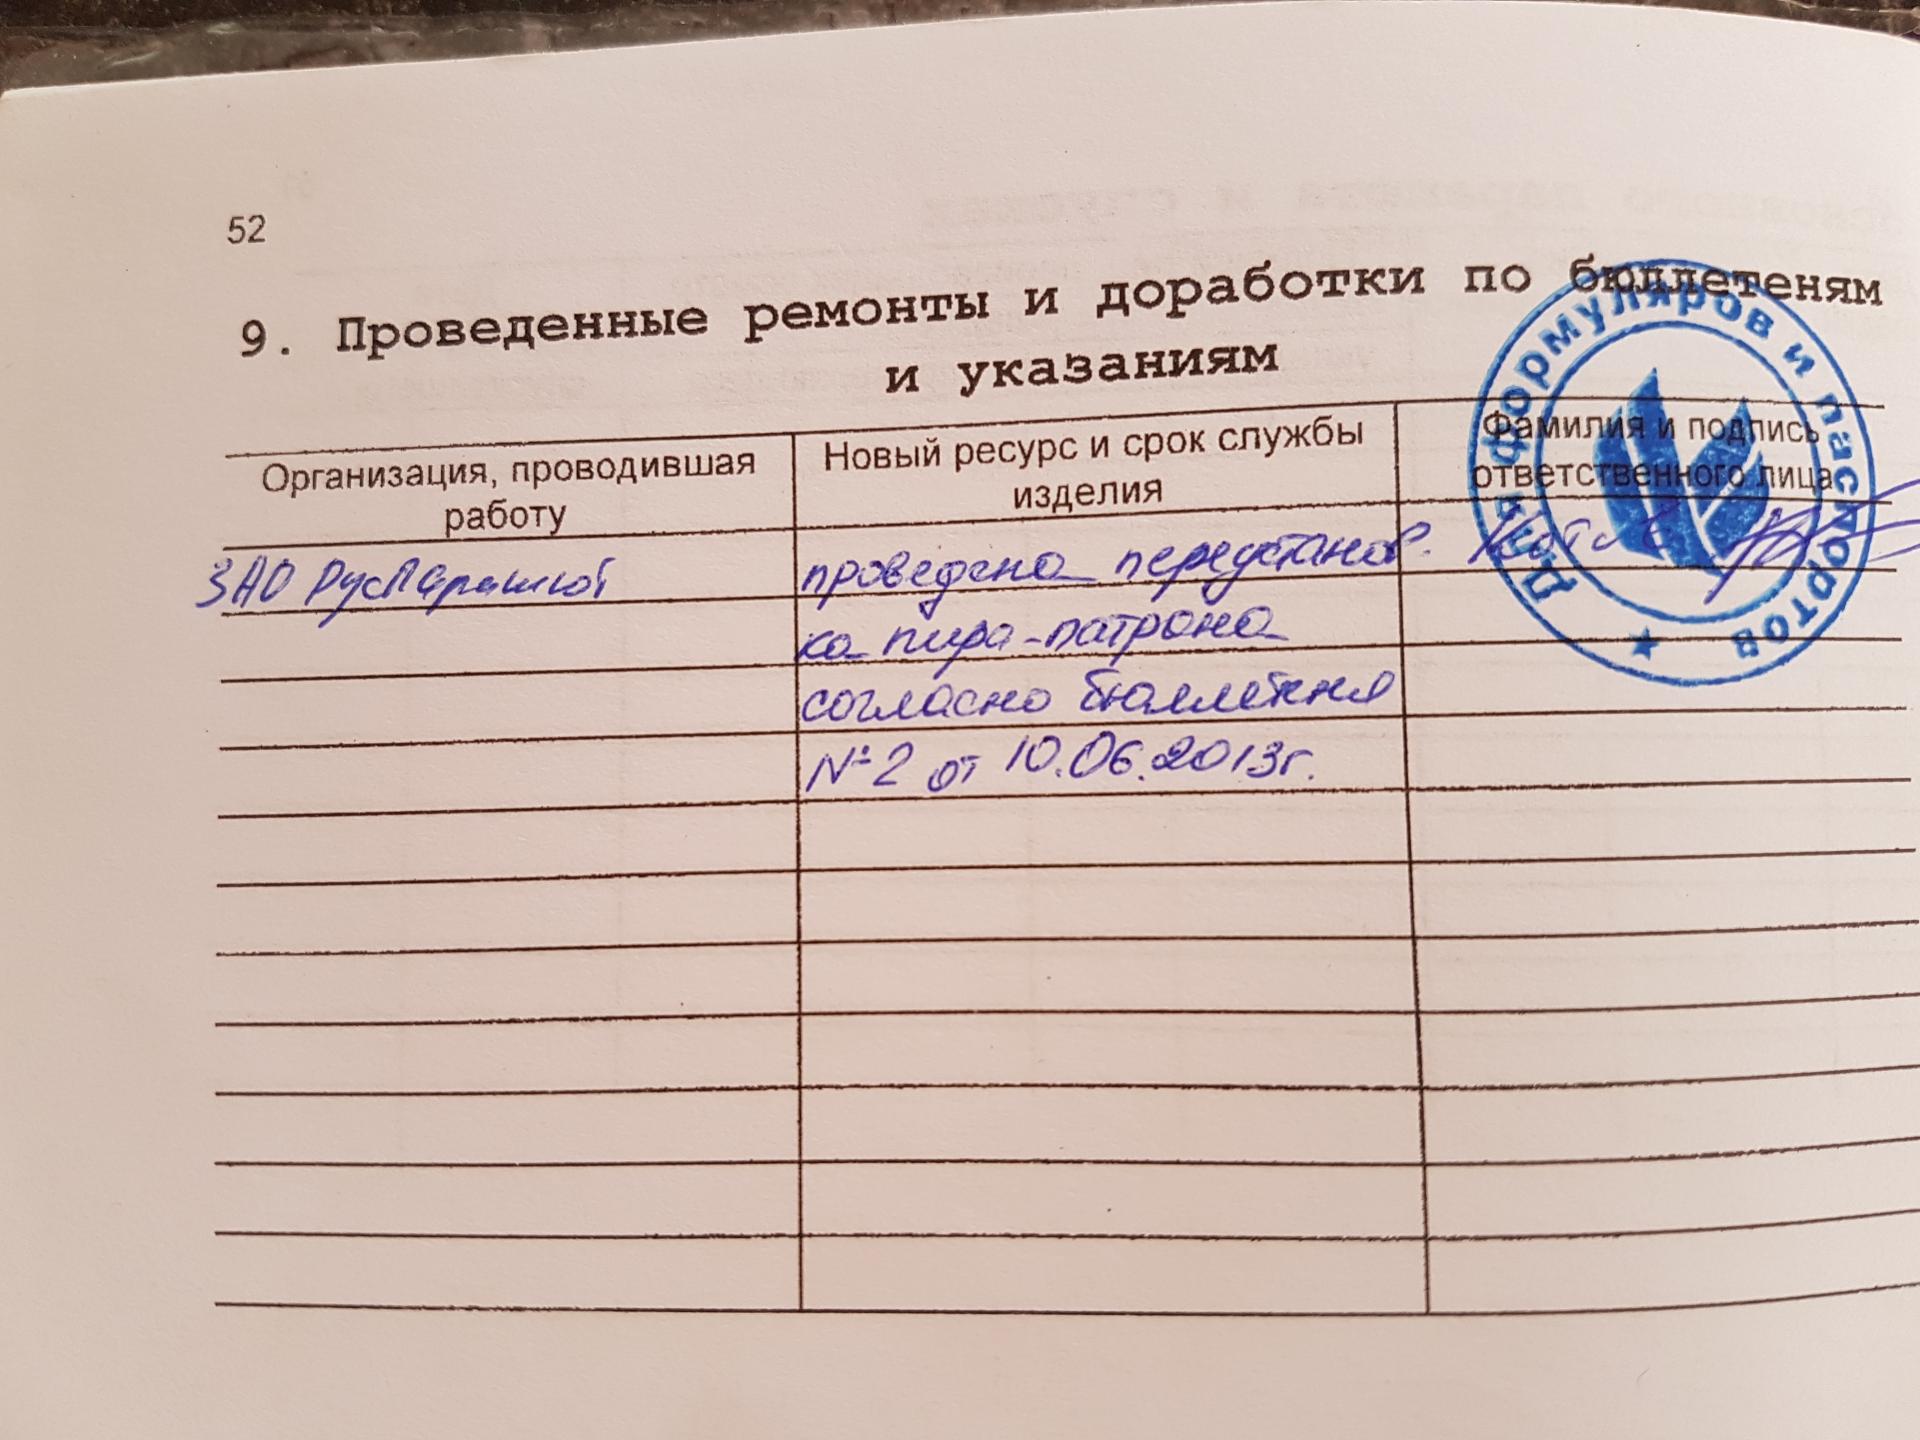 52
9. Проведенные ремонты и доработки по бюллетеням
и указаниям
Организация, проводившая
работу
Новый ресурс и срок службы
изделия
Фамилия и подпись
ответственного лица
ЗАО РусПарашют
проведена перестанов.
ка пиро-патрона
согласно бюллетня
№2 от 10.06.2013г.
Для формуляров и паспортов